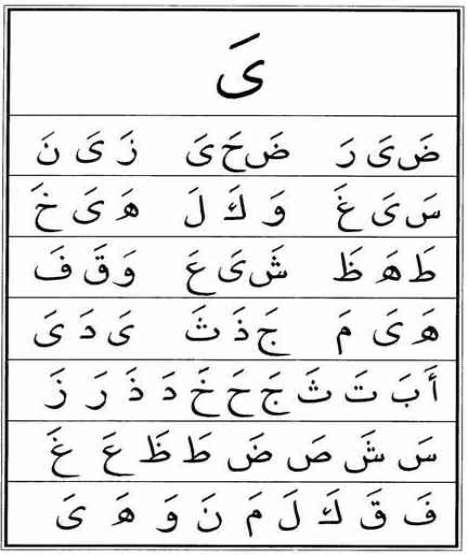 ىَ
ضَ ىَ رَ ضَ حَ ىَ زَ ىَ نَ
سَ ىَ غَ وَ كَ لَ هَ ىَ خَ
طَ هَ ظَ شَ ىَ عَ وَ قَ فَ
هَ ىَ مَ جَ ذَ ثَ ىَ دَ ىَ
أَ بَ تَ ثَ جَ حَ خَ دَ ذَ رَ زَ
سَ شَ صَ ضَ طَ ظَ عَ غَ
فَ قَ كَ لَ مَ نَ وَ هَ ىَ